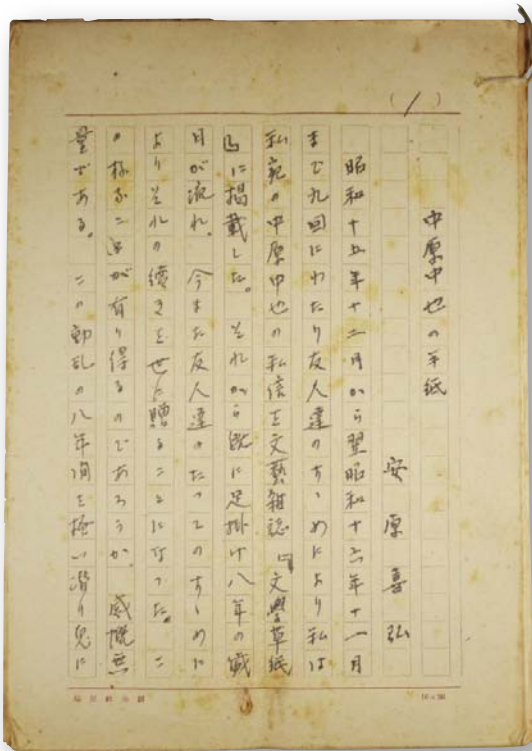 (1)
中原中也の手紙
安原喜弘
昭和十五年十二月から翌昭和十六年十一月
まで九回にわたり友人達のすゝめにより私は
私宛の中原中也の私信を文藝雑誌『文學草紙
』に掲載した。それから既に足掛け八年の歳
月が流れ、今また友人達のたってのすゝめに
よりそれの続きを世に贈ることになった。こ
の様なことが有り得るのであろうか。感慨無
量である。この動乱の八年間を掻い潜り